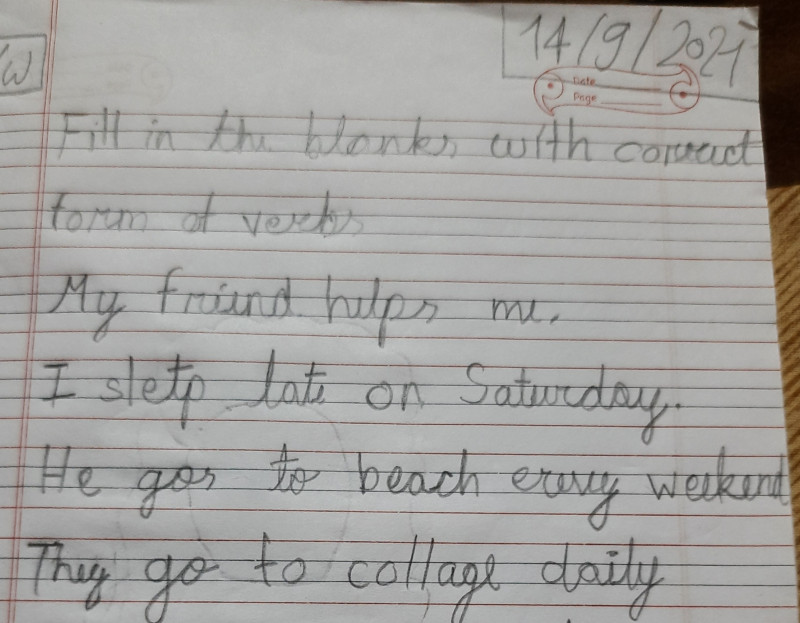 W
14/9/2021
Date
Page
Fill in the blanks with correct
form of verbs
My friend helps me.
I sleep late on Saturday.
He goes to beach every weekend
They go to collage daily